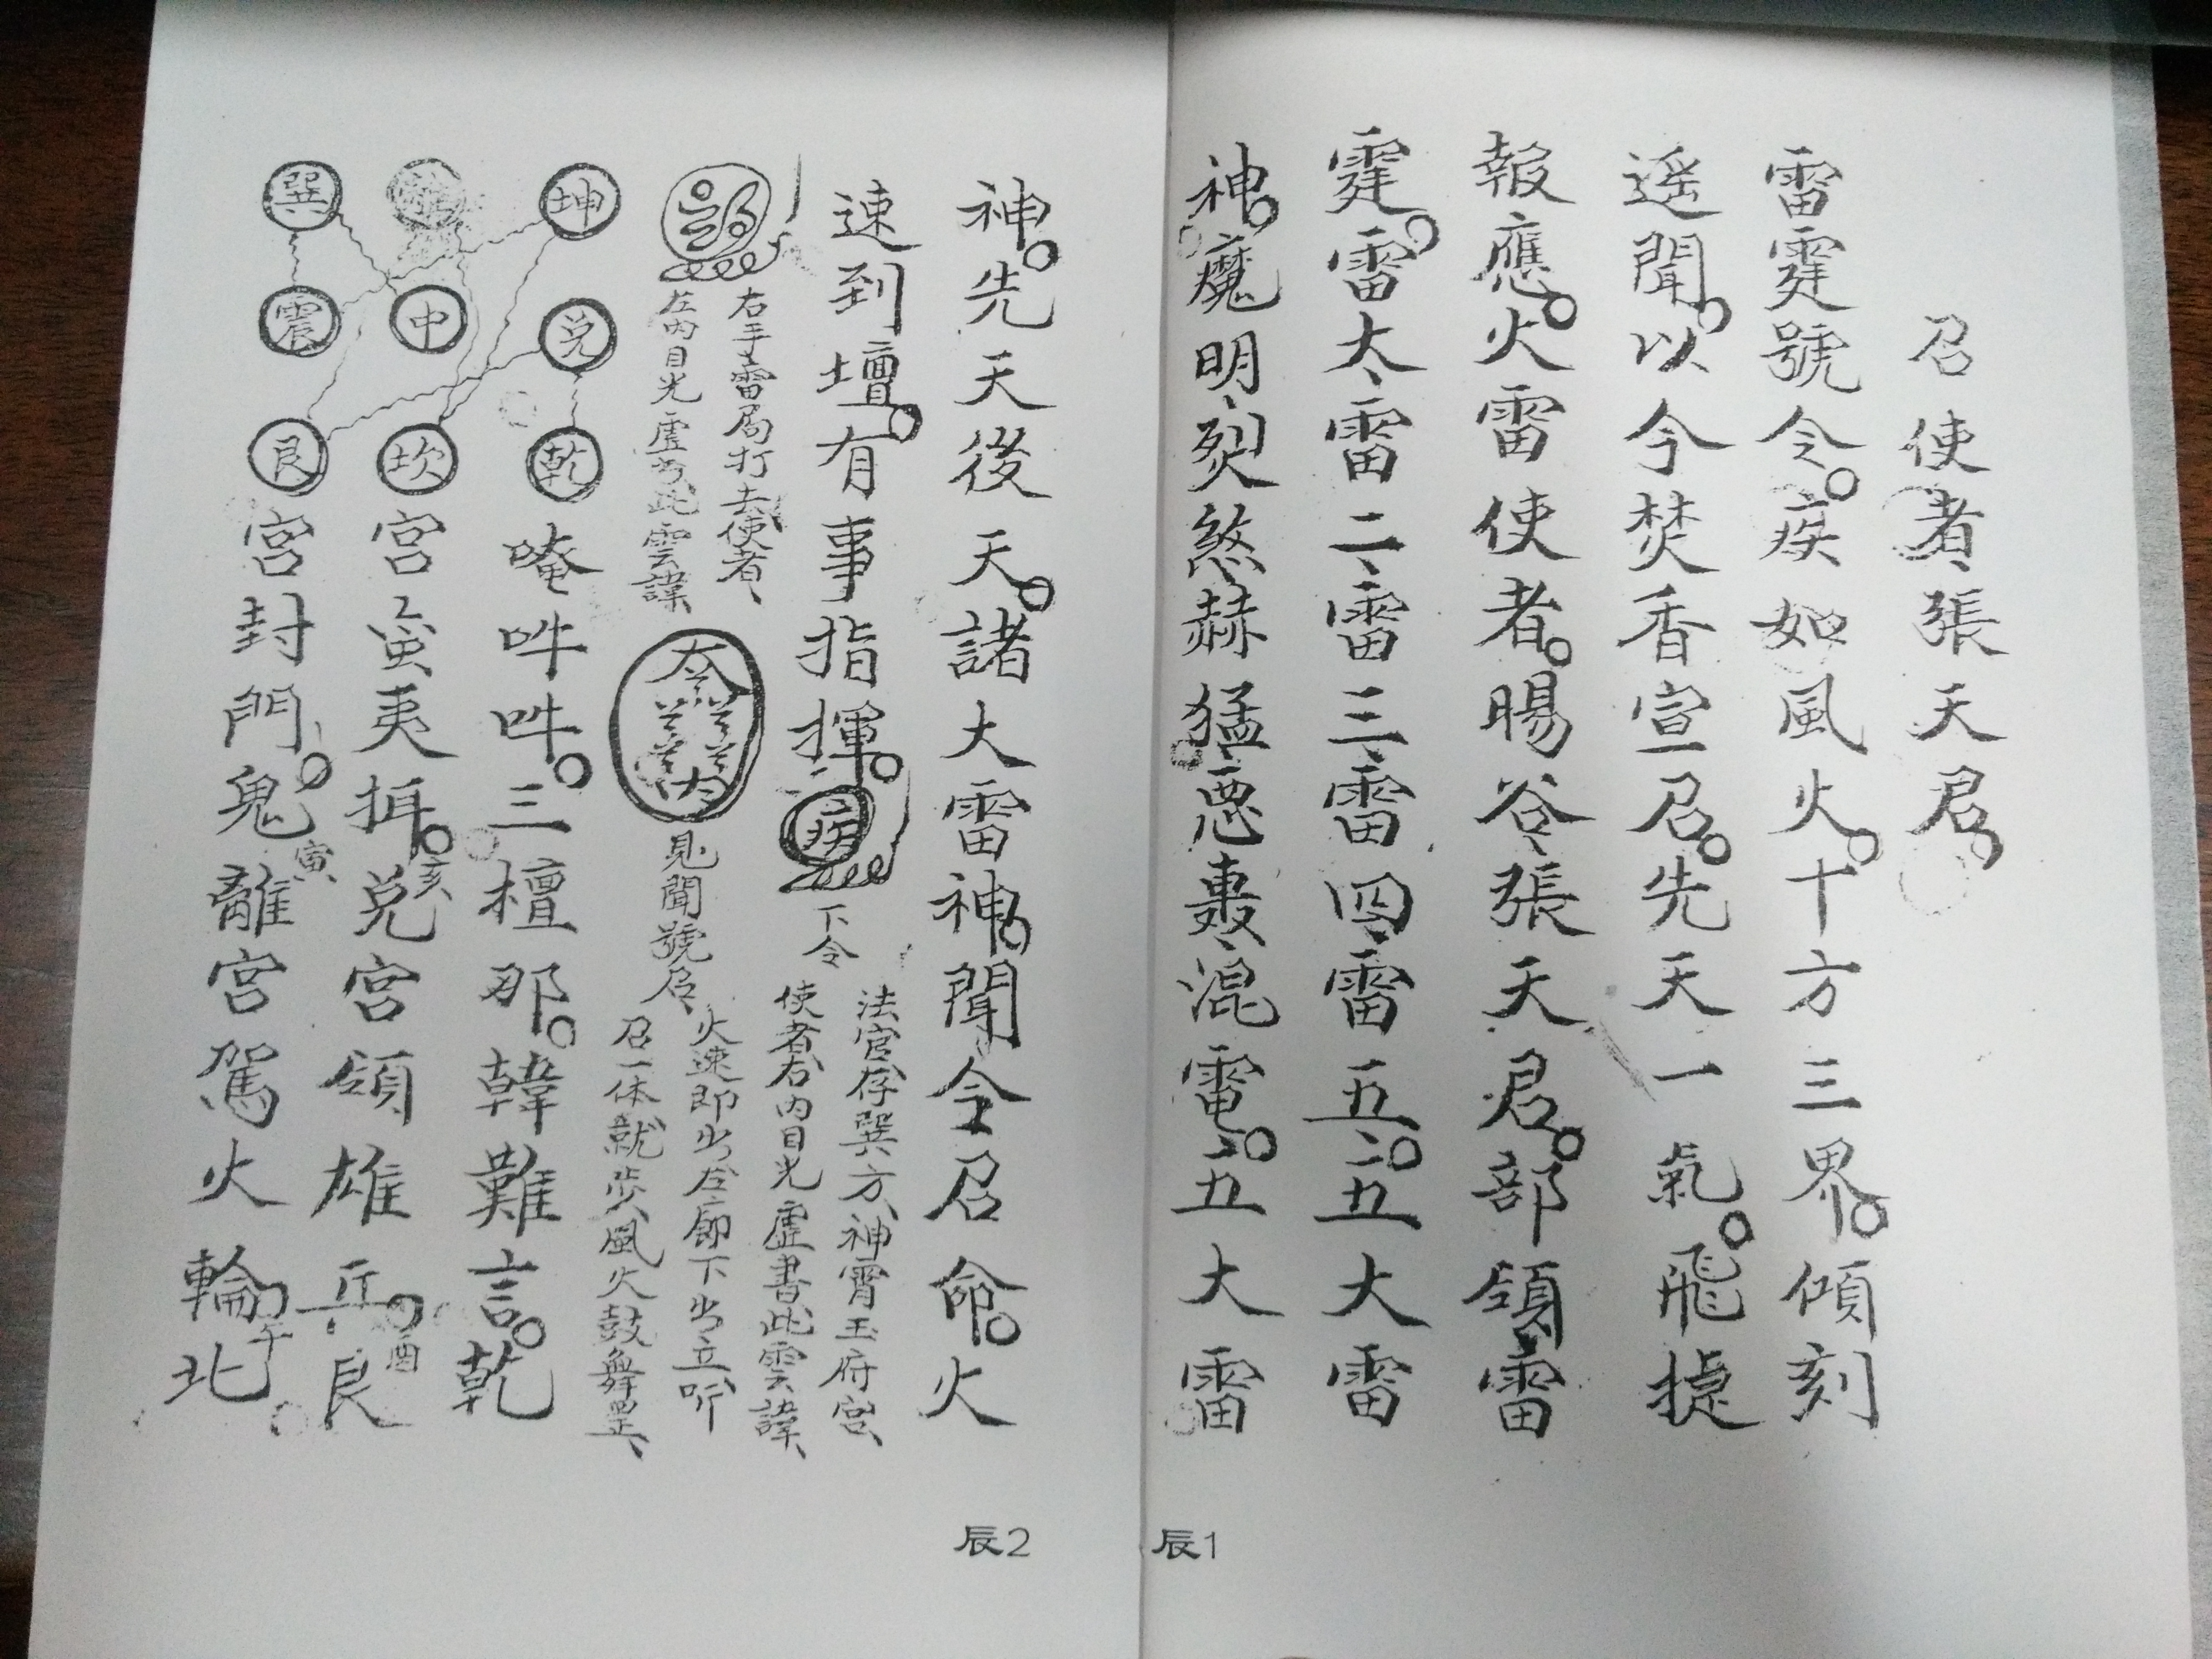 召使者張天君
雷霆號令疾如風火十方三界傾刻
遥聞以今焚香宣召先天一氣飛捷
報應火雷使者賜谷張天君部領雷
霆雷大雷二雷三雷四雷五五大雷
神魔明烈煞赫猛惡轟混電五大雷
辰1
神先天後天諸大雷神聞令召命火
速到壇有事指揮
下令
法官存巽方神霄玉府宫
使者右内目光虚書此雲諱
右手雷局打去使者
左内目光虚書此雲諱
見聞號召
火速即出左廊下出立听
召一体就步風火鼓舞罡
坤 兑 乾
中 坎
巽 震 艮
唵吽吽三檀那韓難言乾
亥
宫蛮夷揖兑宫領雄兵艮
酉
宫封門鬼離宫駕火輪北
寅
午
辰2